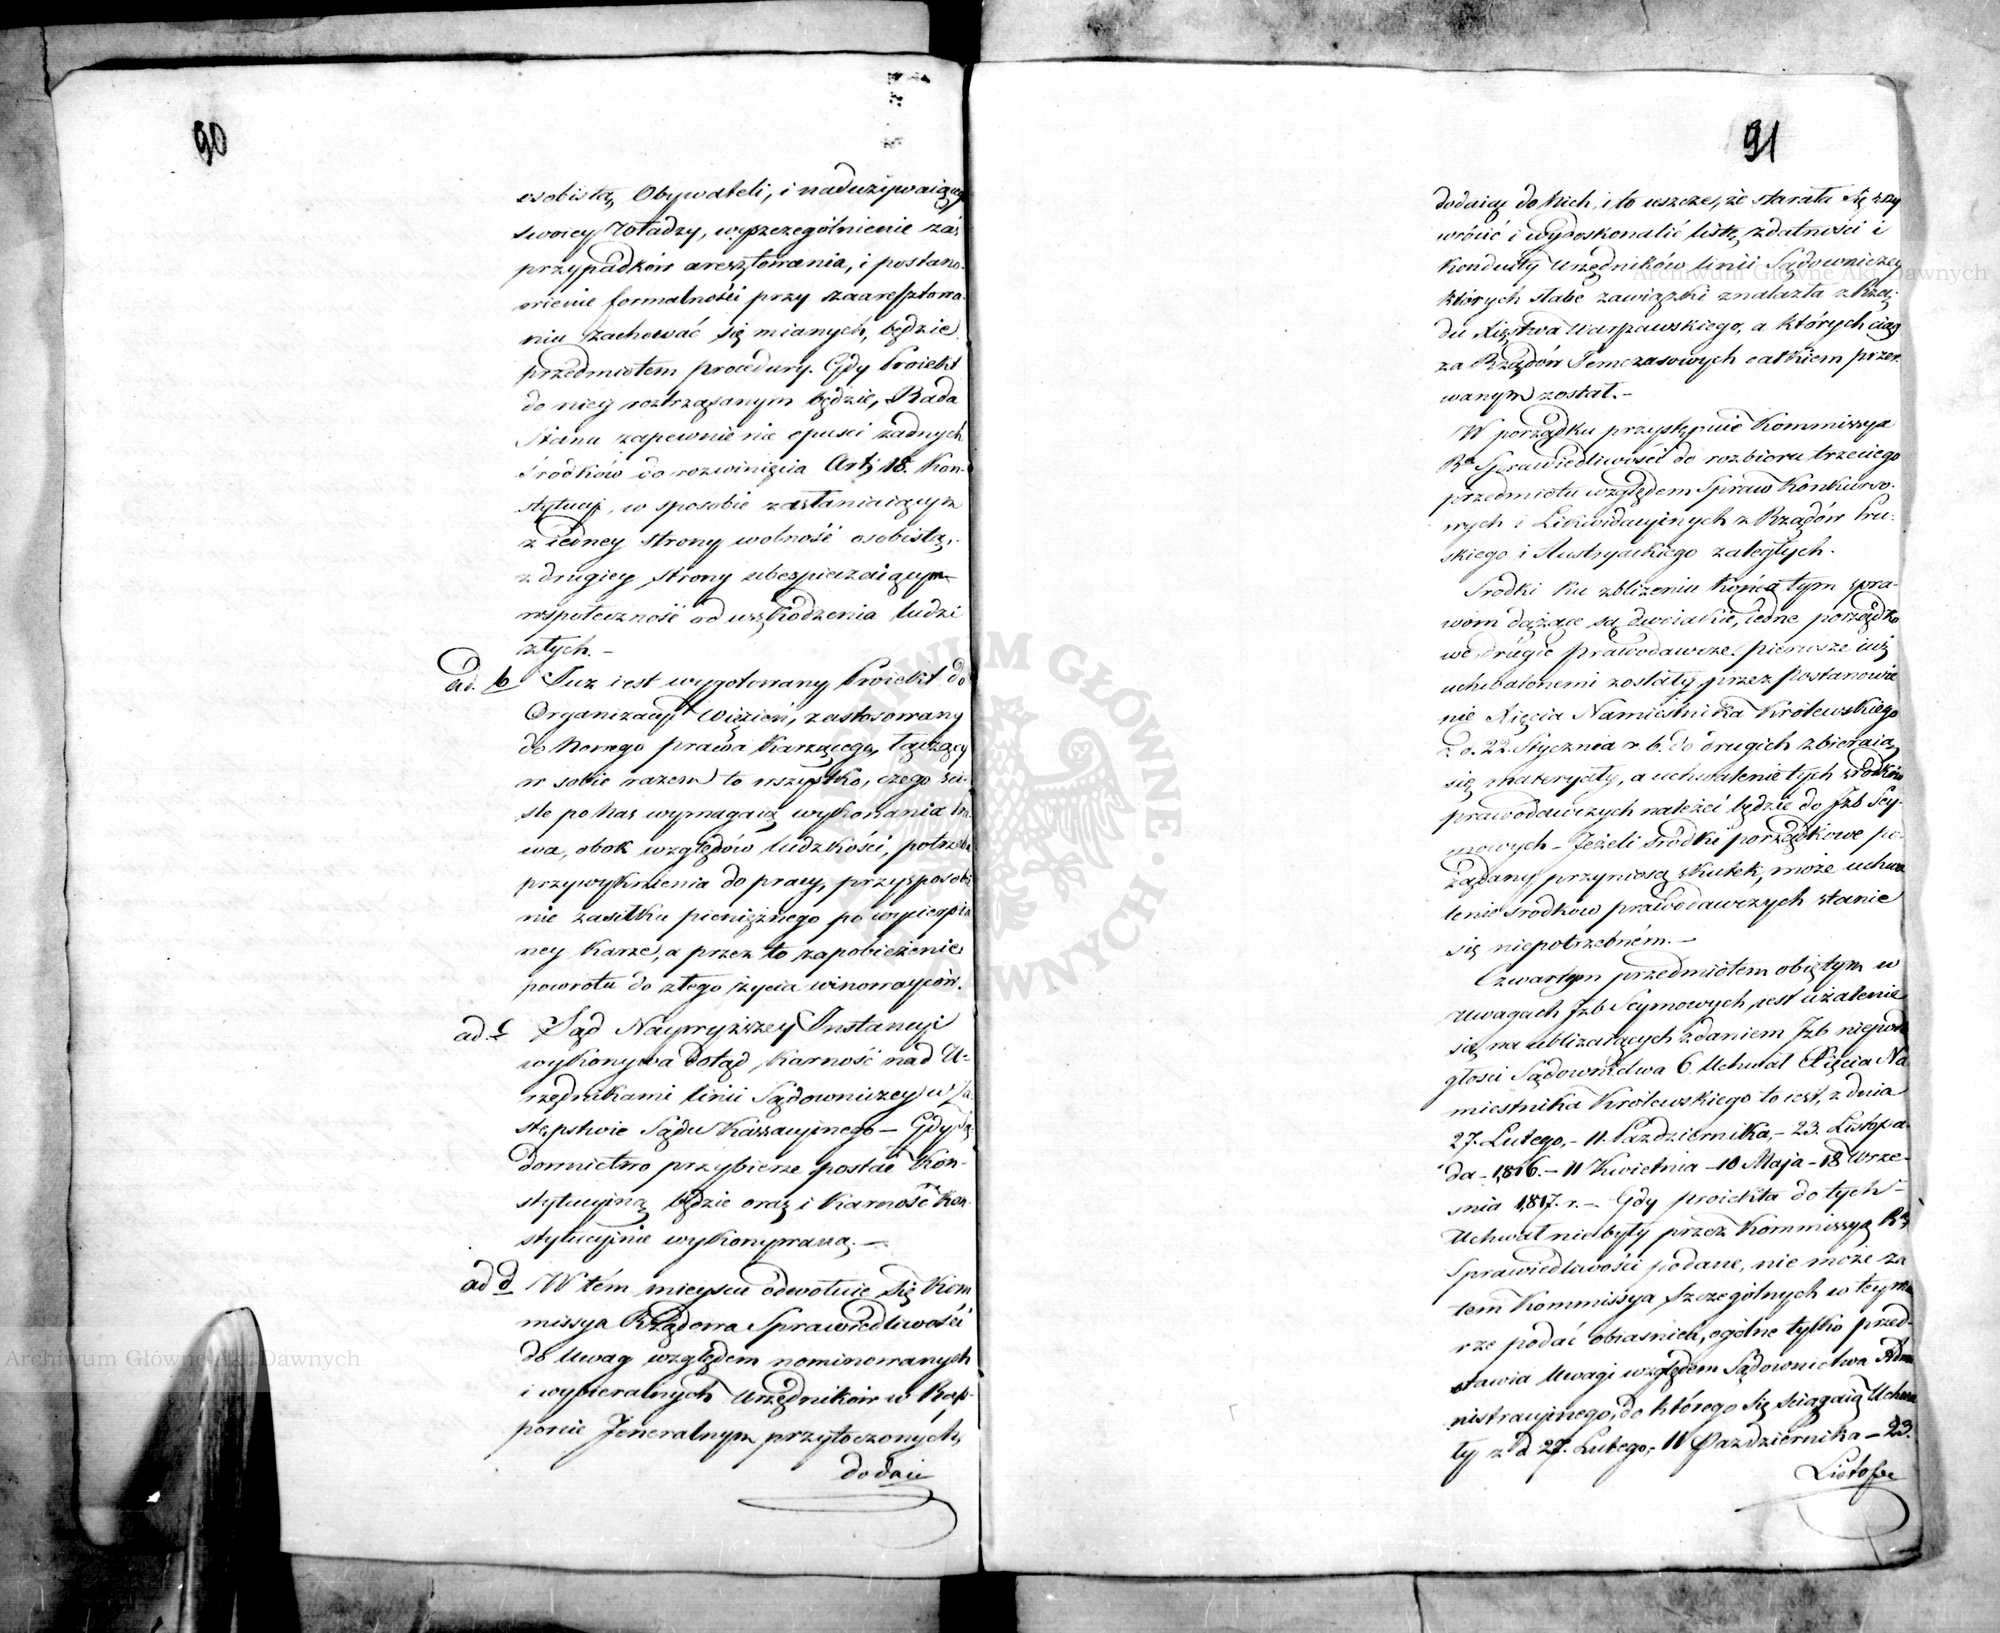 90
osobistą Obywateli, i nadużywaiącey
swoiey Władzy, wyszczególnienie zaś
przypadków aresztowania, i postano-
wienie formalności przy zaaresztowa-
niu zachować się mianych, będzie
przedmiotem procedury. Gdy Proiekt
do niey roztrząsanym będzie, Rada
Stanu zapewnie nie opuści żadnych
środków do rozwinięcia Arty 18. Kon-
stytucyi, w sposobie zasłaniaiącym
z iedney strony wolność osobistą,
z drugiey strony ubezpieczaiącym
społeczność od uszkodzenia ludzi
złych. –
ad. b Już iest wygotowany Proiekt do
Organizacyi Więzień, zastosowany
do nowego prawa Karzącego, łączący
w sobie razem to wszystko, czego ści-
śle po nas wymagaią wykonania Pra-
wa, obok względów ludzkości, potrzeba
przywyknienia do pracy, przysposobie
nie zasiłku pieniężnego po wycierpia
ney Karze, a przez to zapobieżenie
powrotu do złego życia winowaycow.
ad. c Sąd Naywyższey Instancyi
wykonywa dotąd Karność nad U-
rzędnikami linii Sądowniczey w Za-
stępstwie Sądu Kassacyinego – Gdy Są
downictwo przybierze postać Kon-
stytucyiną będzie oraz i Karność Kon-
stytucyinie wykonywana. –
ad d W tém mieyscu odwołuie się Kom
missya Rządowa Sprawiedliwości
do Uwag względem nominowanych
i wybieralnych Urzędników w Rap-
porcie Jeneralnym przytoczonych,
dodaiąc
91
dodaiąc do Nich i to ieszcze, że starała się przy
wrócić i wydoskonalić listę zdatności i
Konduity Urzędników linii Sądowniczey
których słabe zawiązki znalazła z Rzą-
du Xięstwa Warszawskiego, a których ciąg
za Rządów Tymczasowych całkiem przer
wanym został. –
W porządku przystępuie Kommissya
Ra Sprawiedliwości do rozbioru trzeciego
przedmiotu względem Spraw Konkurso-
wych i Likwidacyinych z Rządów Pru-
skiego i Austryackiego zaległych.
Srodki ku zbliżeniu Końca tym spra-
wom dążące są dwoiakie, iedne porządko
we, drugie prawodawcze, pierwsze iuż
uchwalonemi zostały przez Postanowie
nie Xięcia Namiestnika Królewskiego
z d. 22. Stycznia r. b. do drugich zbieraią
się materyały, a uchwalenie tych środków
prawodawczych należéć będzie do Izb Sey-
mowych – Jeżeli środki porządkowe po-
żądany przyniosą skutek, może uchwa
lenie srodkow prawodawczych stanie
się niepotrzebném. –
Czwartym przedmiotem obiętym w
Uwagach Izb Seymowych, iest użalenie
się na ubliżaiących zdaniem Izb niepod
głosci Sądownictwa 6. Uchwał Xięcia Na
miestnika Królewskiego to iest, z dnia
27. Lutego, – 11. Października, – 23. Listopa-
da – 1816. – 11 Kwietnia – 10 Maja – 18 Wrze-
snia 1817. r. – Gdy proiekta do tych
Uchwał niebyły przez Kommissyą Rą
Sprawiedliwości podane, nie może za
tem Kommissya szczególnych w tey mie
rze podać obiasnień, ogólne tylko przed-
stawia Uwagi względem Sądownictwa Admi
nistracyinego, do którego się ściągaią Uchwa
ły z d 27. Lutego, – 11 Października – 23.
Listopa
Archiwum Główne Akt Dawnych